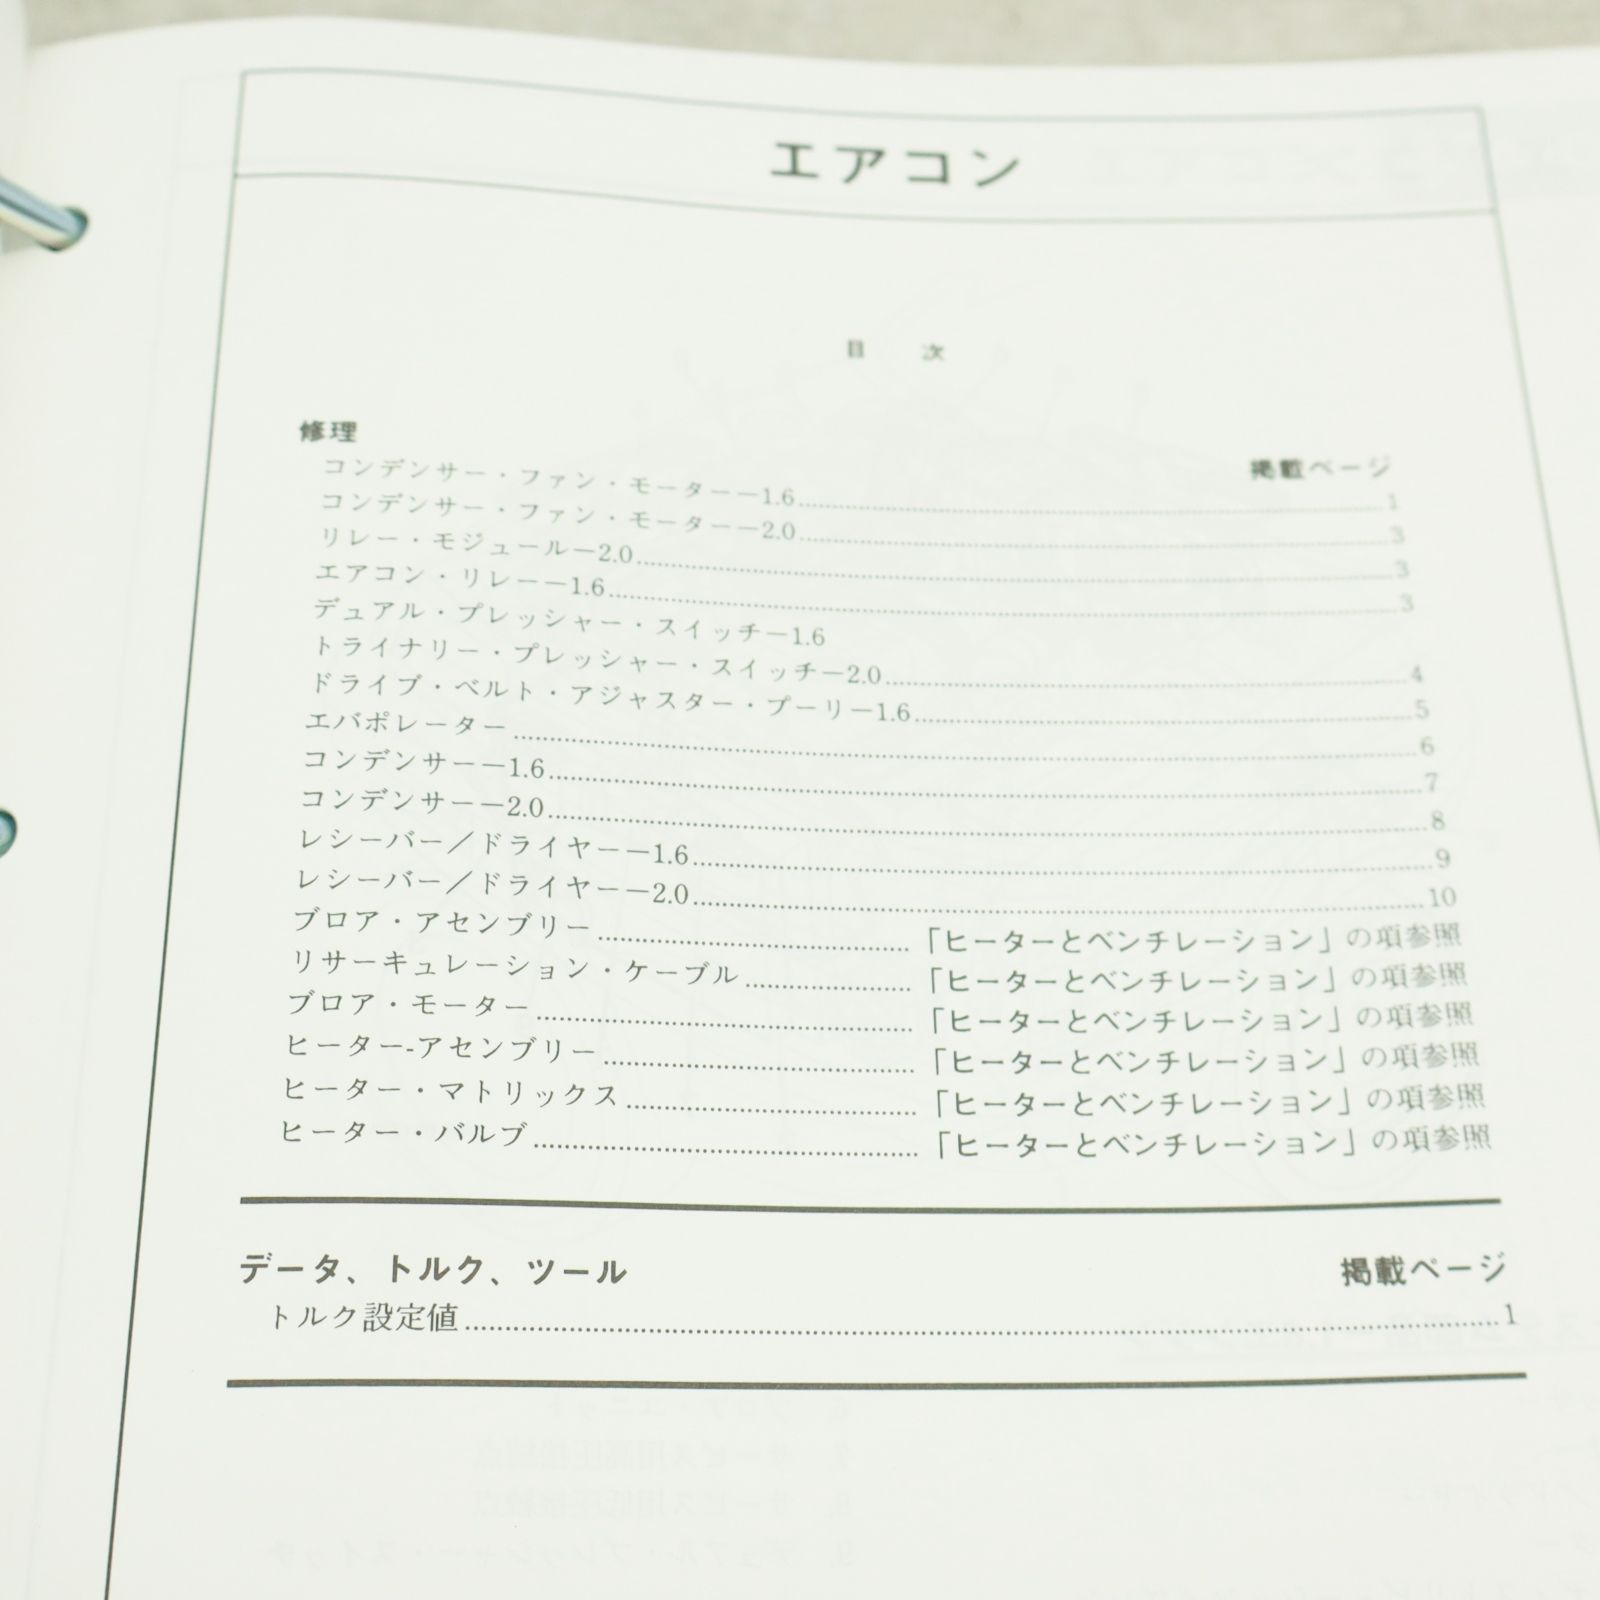 エアコン
目 次
修理
掲載ページ
コンデンサー・ファン・モーター―1.6 1
コンデンサー・ファン・モーター―2.0 3
リレー・モジュール―2.0 3
エアコン・リレー―1.6 3
デュアル・プレッシャー・スイッチ―1.6
トライナリー・プレッシャー・スイッチ―2.0 4
ドライブ・ベルト・アジャスター・プーリー1.6 5
エバポレーター 6
コンデンサー―1.6 7
コンデンサー―2.0 8
レシーバー／ドライヤー―1.6 9
レシーバー／ドライヤー―2.0 10
ブロア・アセンブリー 「ヒーターとベンチレーション」の項参照
リサーキュレーション・ケーブル 「ヒーターとベンチレーション」の項参照
ブロア・モーター 「ヒーターとベンチレーション」の項参照
ヒーター-アセンブリー 「ヒーターとベンチレーション」の項参照
ヒーター・マトリックス 「ヒーターとベンチレーション」の項参照
ヒーター・バルブ 「ヒーターとベンチレーション」の項参照
データ、トルク、ツール 掲載ページ
トルク設定値 1